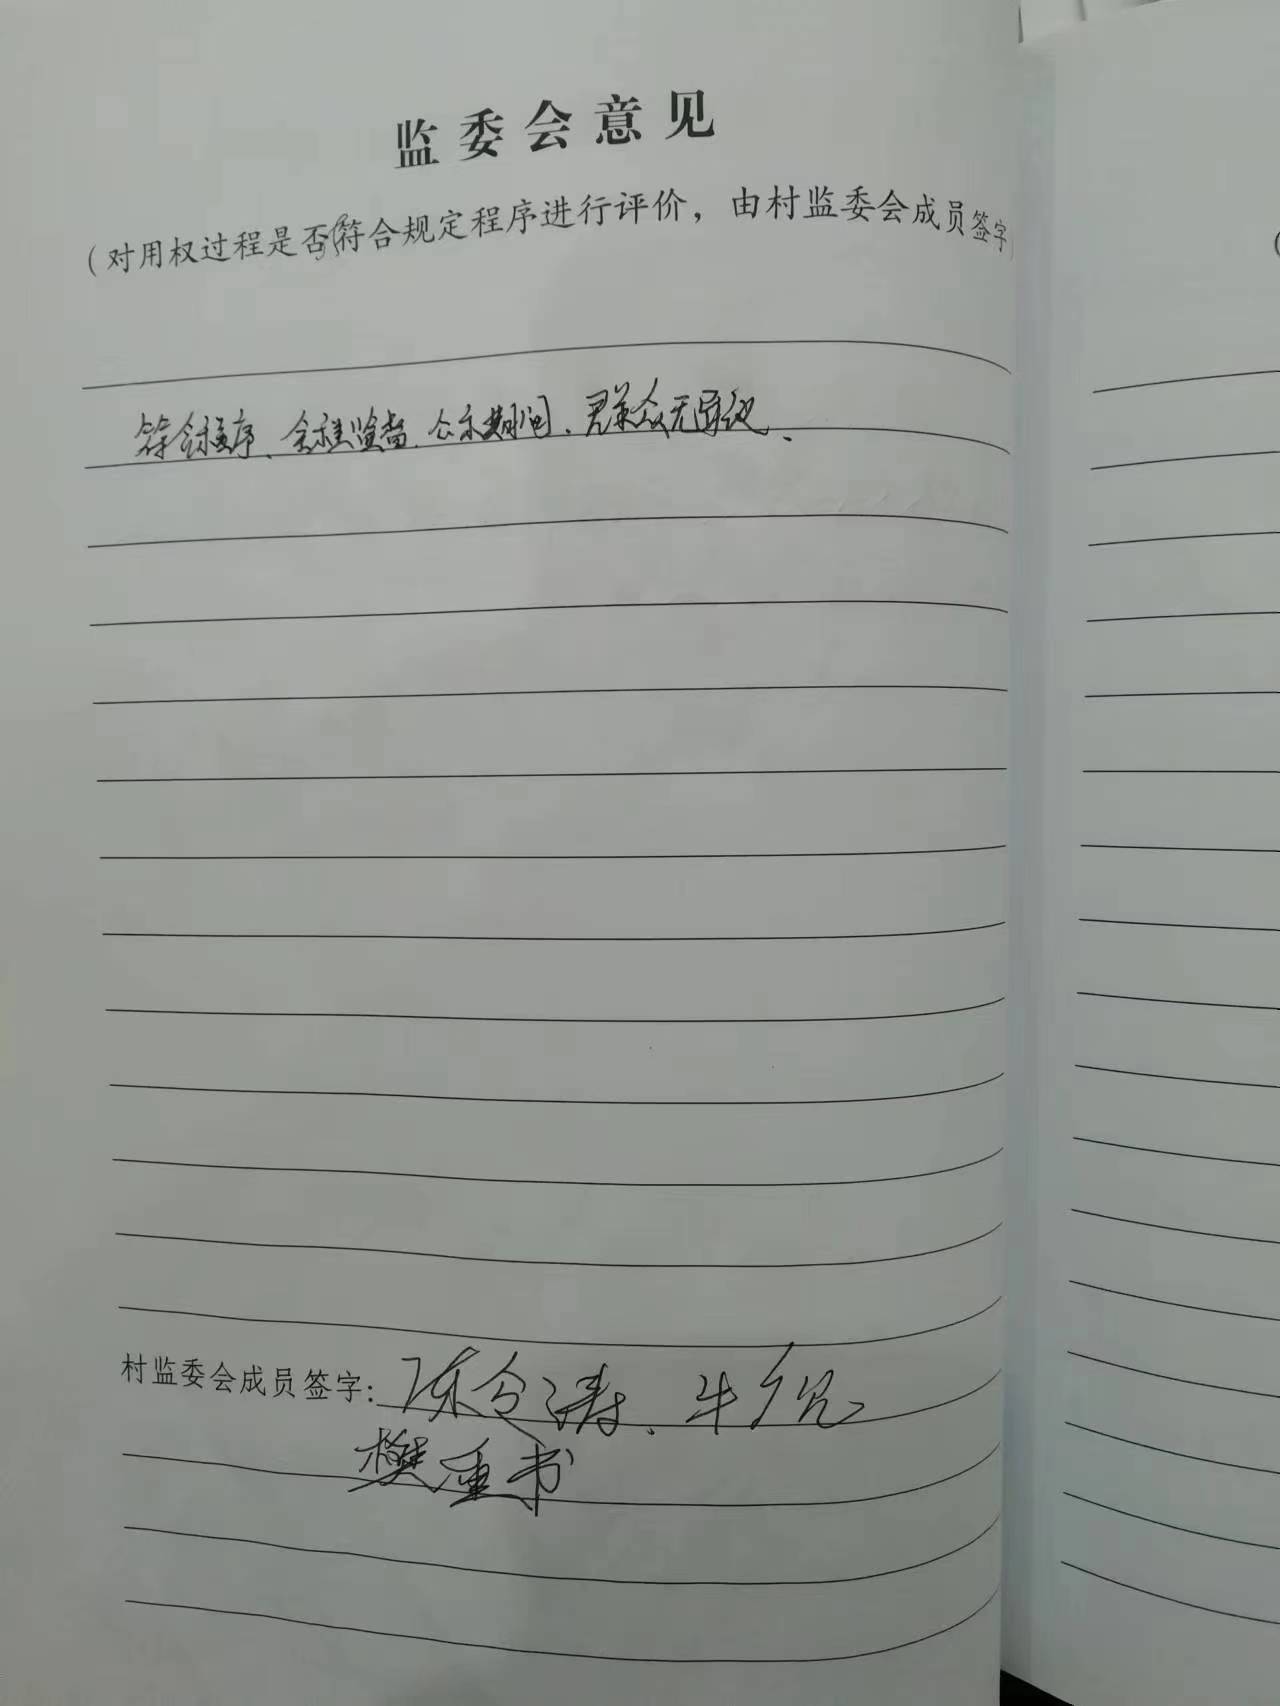 监委会意见
（对用权过程是否符合规定程序进行评价，由村监委会成员签字）
符合程序、全程监督、公示期间、群众无异议、
村监委会成员签字：陈令涛、牛
樊重书